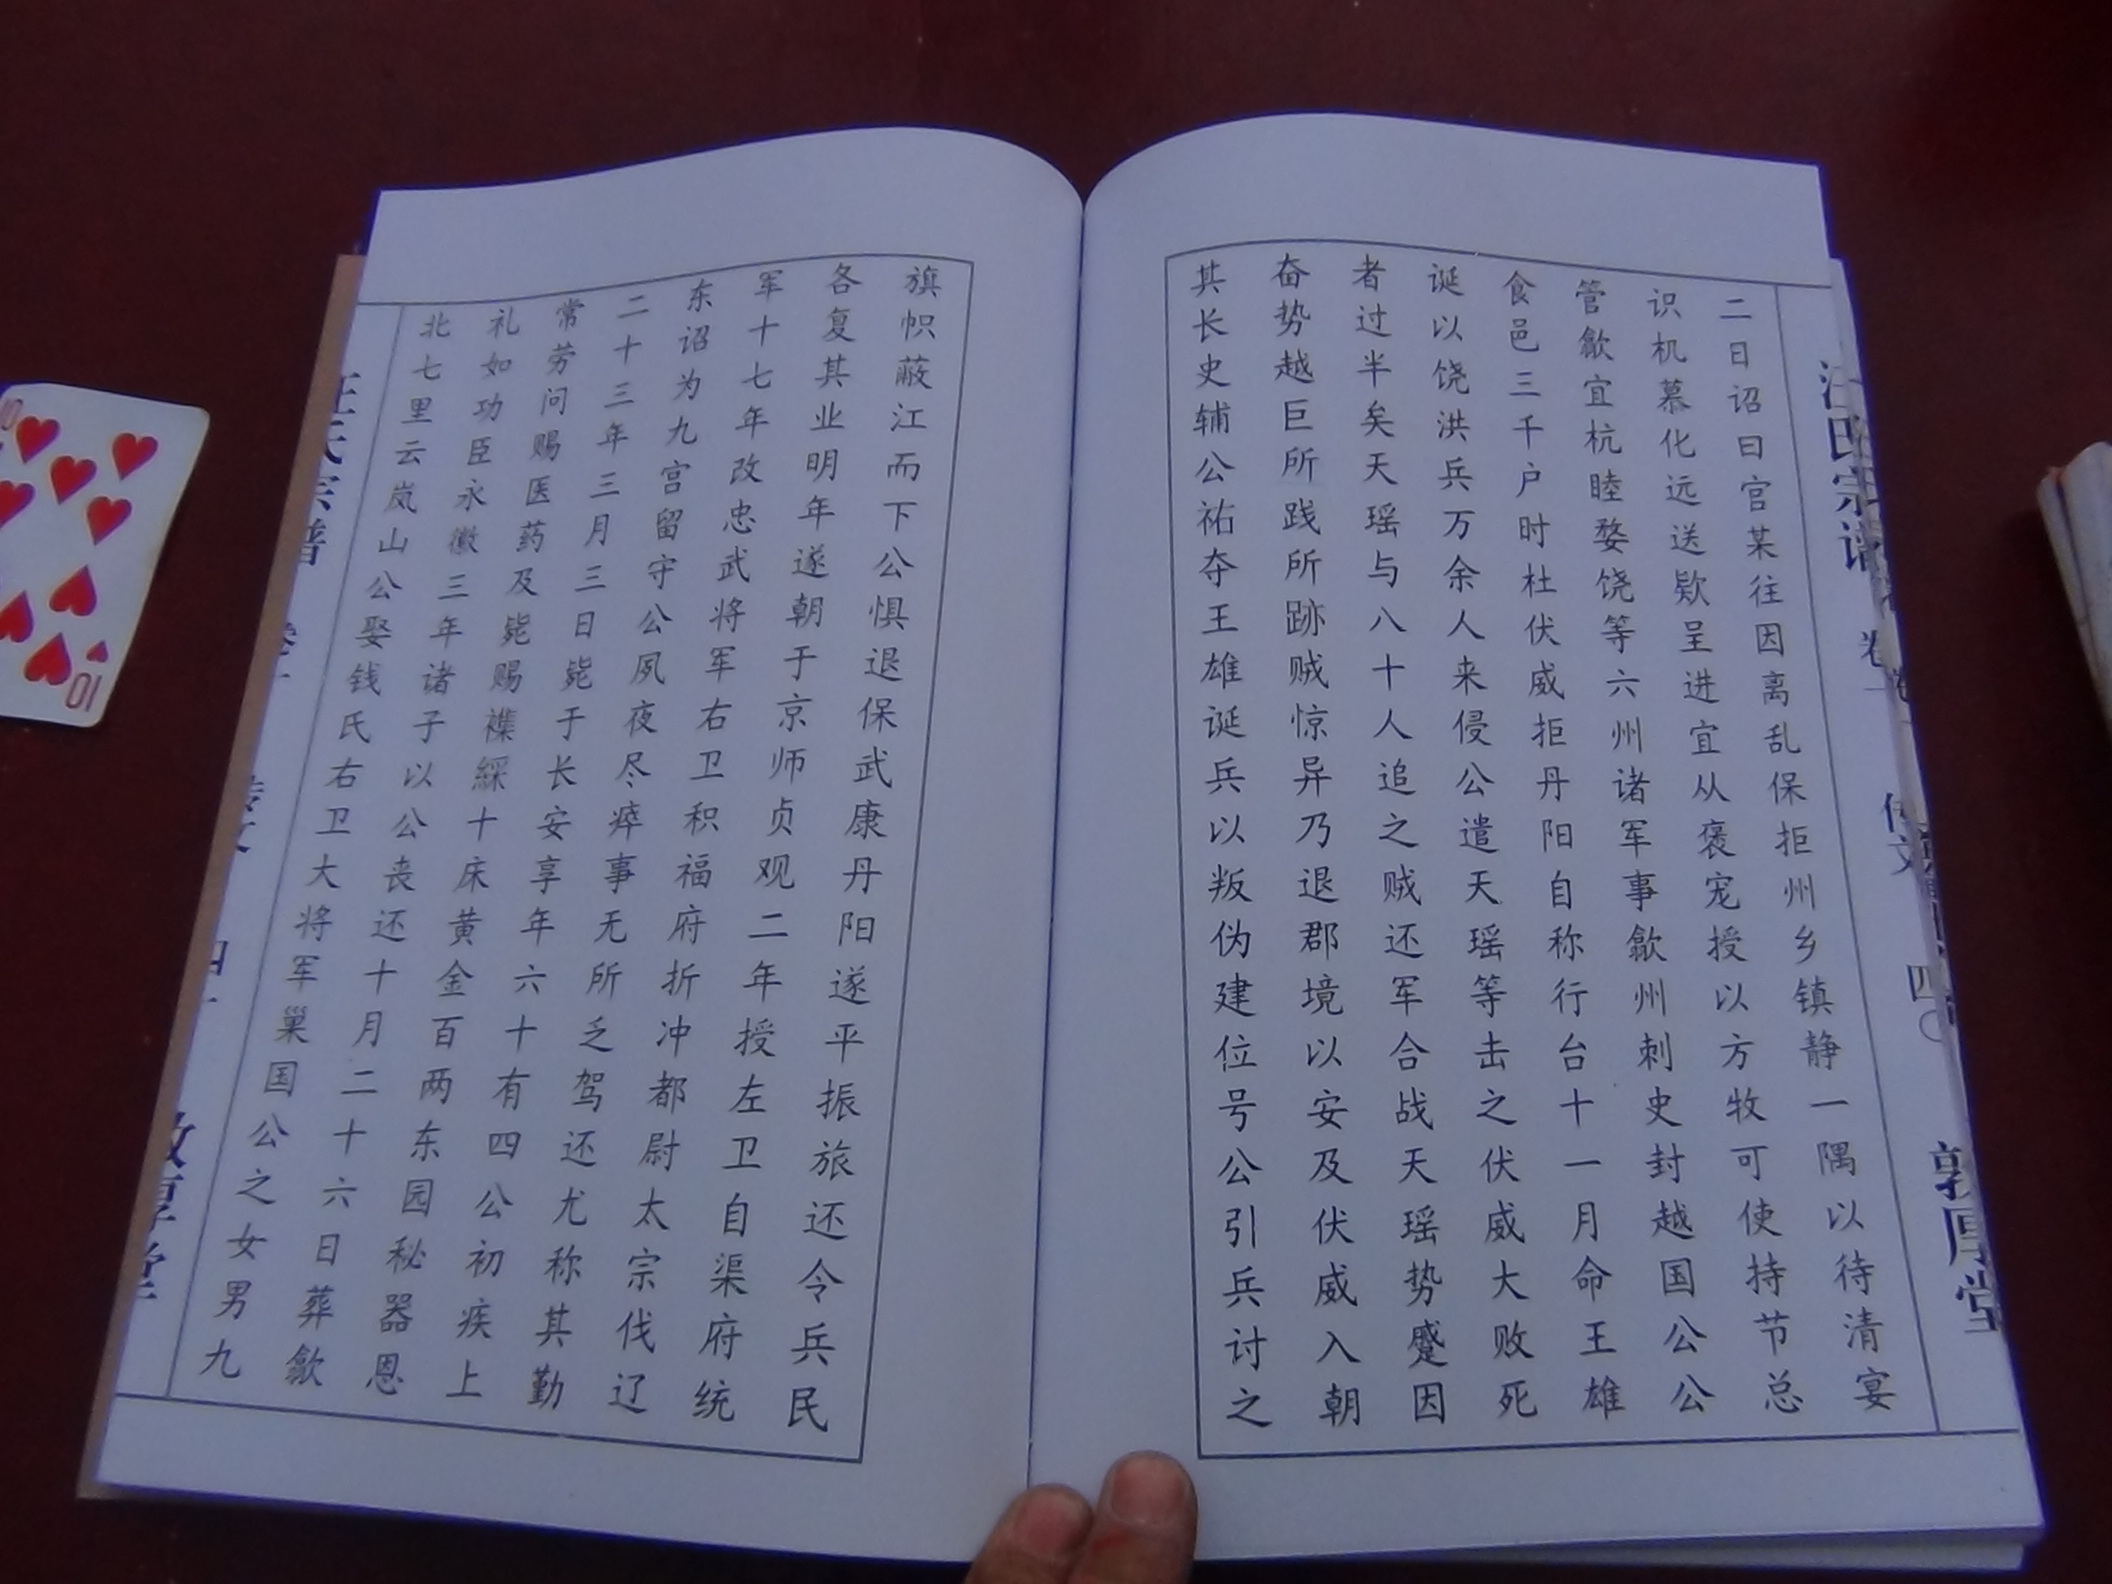 汪氏宗谱 卷一 传文 四〇 敦厚堂
二日诏曰宫某往因离乱保拒州乡镇静一隅以待清宴
识机慕化远送欵呈进宜从褒宠授以方牧可使持节总
管歙宜杭睦婺饶等六州诸军事歙州刺史封越国公公
食邑三千户时杜伏威拒丹阳自称行台十一月命王雄
诞以饶洪兵万余人来侵公遣天瑶等击之伏威大败死
者过半矣天瑶与八十人追之贼还军合战天瑶势蹙因
奋势越巨所践所跡贼惊异乃退郡境以安及伏威入朝
其长史辅公祐夺王雄诞兵以叛伪建位号公引兵讨之
旗帜蔽江而下公惧退保武康丹阳遂平振旅还令兵民
各复其业明年遂朝于京师贞观二年授左卫自渠府统
军十七年改忠武将军右卫积福府折冲都尉太宗伐辽
东诏为九宫留守公夙夜尽瘁事无所乏驾还尤称其勤
二十三年三月三日毙于长安享年六十有四公初疾上
常劳问赐医药及毙赐襍綵十床黄金百两东园秘器恩
礼如功臣永徽三年诸子以公丧还十月二十六日葬歙
北七里云岚山公娶钱氏右卫大将军巢国公之女男九
汪氏宗谱 卷一 传文 四一 敦厚堂